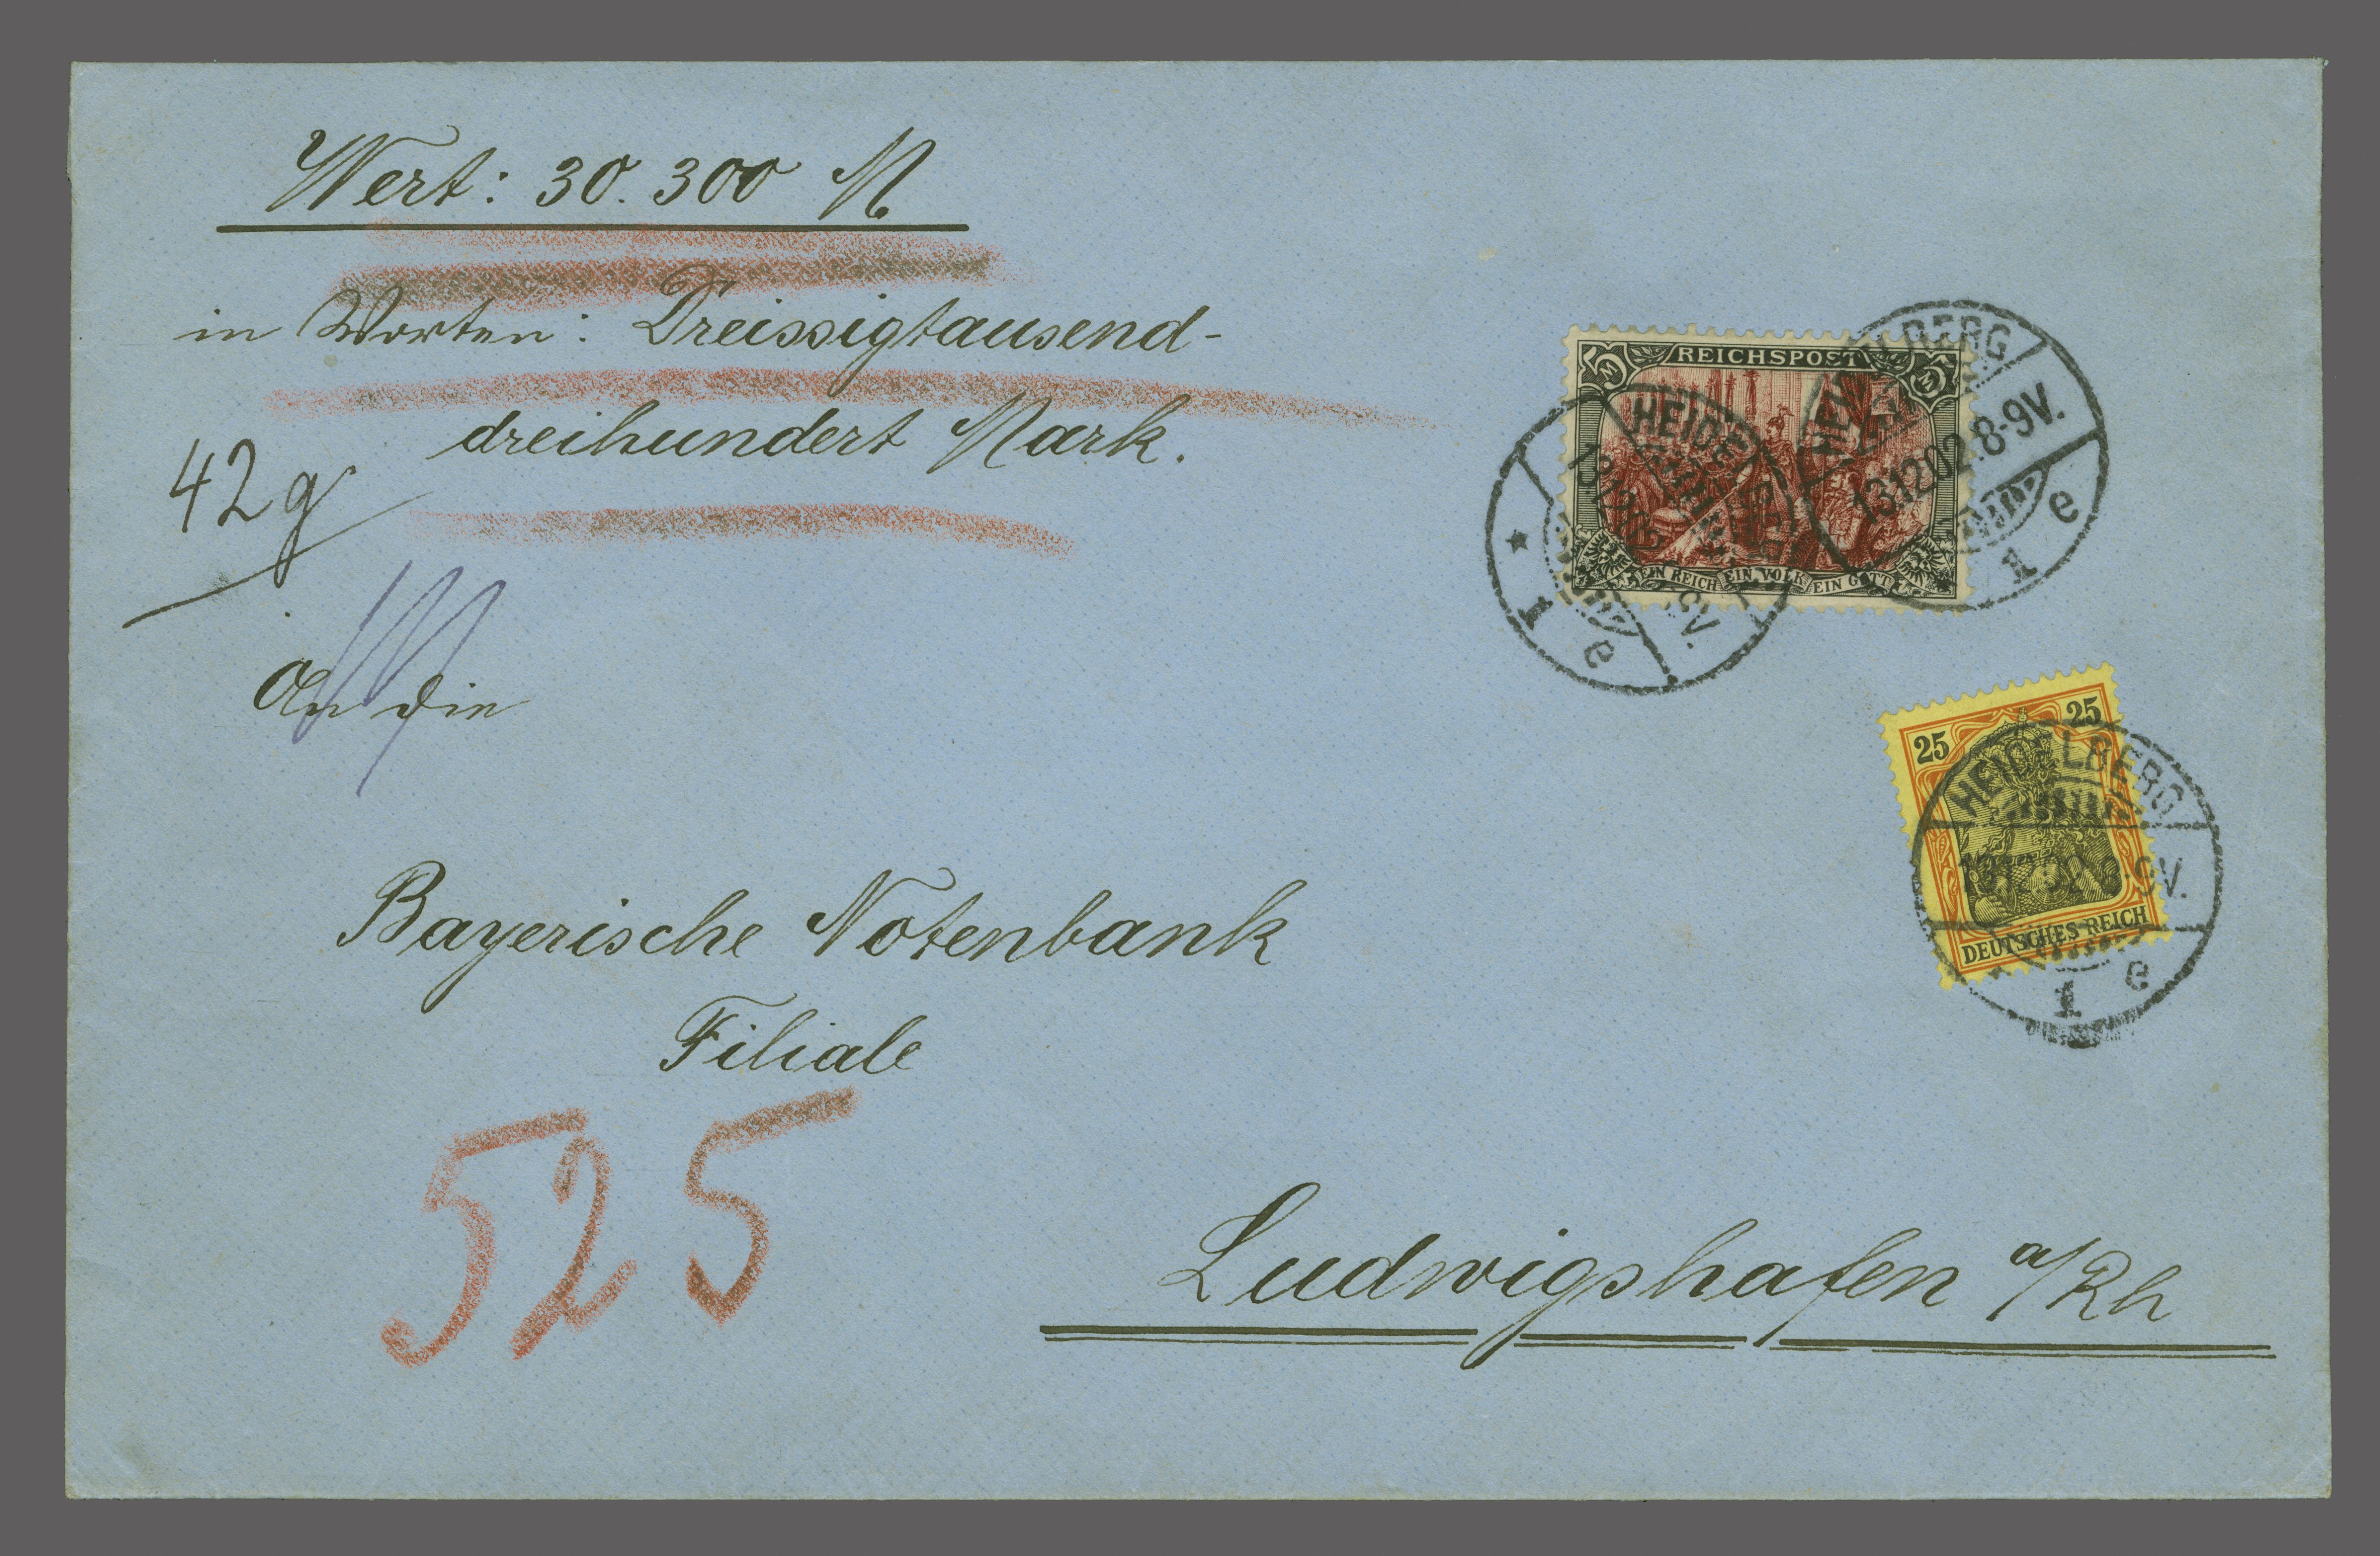 Wert: 30.300 M
in Worten: Dreissigtausend-
dreihundert Mark.
42 g
An die
Bayerische Notenbank
Filiale
525
Ludwigshafen a/Rh
5 M REICHSPOST 5 M
EIN REICH EIN VOLK EIN GOTT
HEIDELBERG
13.12.02.8-9V.
1 e
HEIDE
* 1 e
25 25
DEUTSCHES REICH
HEIDELBERG
9V.
1 e